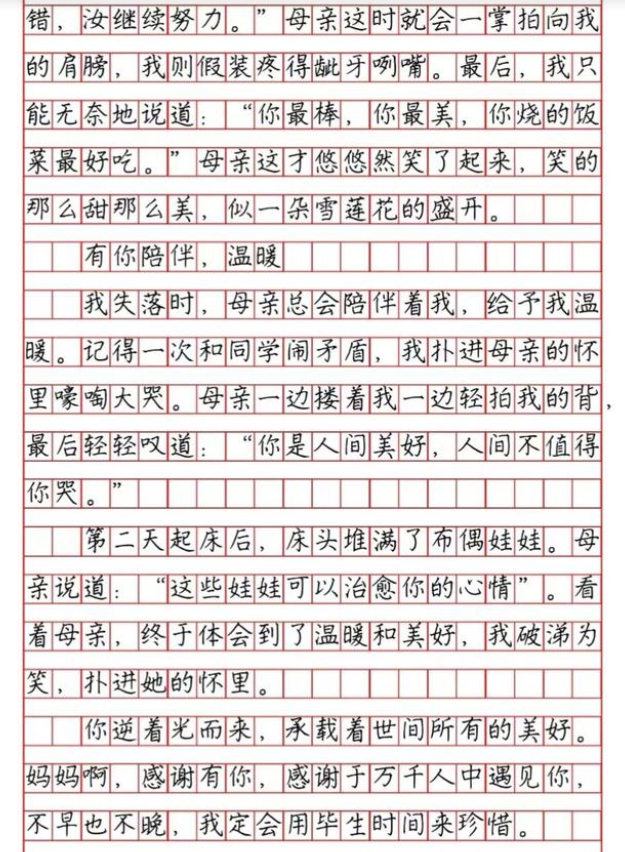 错，汝继续努力。”母亲这时就会一掌拍向我
的肩膀，我则假装疼得龇牙咧嘴。最后，我只
能无奈地说道：“你最棒，你最美，你烧的饭
菜最好吃。”母亲这才悠悠然笑了起来，笑的
那么甜那么美，似一朵雪莲花的盛开。
有你陪伴，温暖
我失落时，母亲总会陪伴着我，给予我温
暖。记得一次和同学闹矛盾，我扑进母亲的怀
里嚎啕大哭。母亲一边搂着我一边轻拍我的背，
最后轻轻叹道：“你是人间美好，人间不值得
你哭。”
第二天起床后，床头堆满了布偶娃娃。母
亲说道：“这些娃娃可以治愈你的心情”。看
着母亲，终于体会到了温暖和美好，我破涕为
笑，扑进她的怀里。
你逆着光而来，承载着世间所有的美好。
妈妈啊，感谢有你，感谢于万千人中遇见你，
不早也不晚，我定会用毕生时间来珍惜。